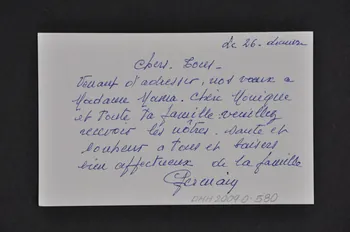 Le 26-
Chers. Tous.-
Venant d'adresser, nos vœux a
Madame Mama. Chère Monique
et Toute Ta famille veuillez
recevoir les nôtres. Santé et
bonheur a tous et baisers
bien affectueux de la famille
Germain